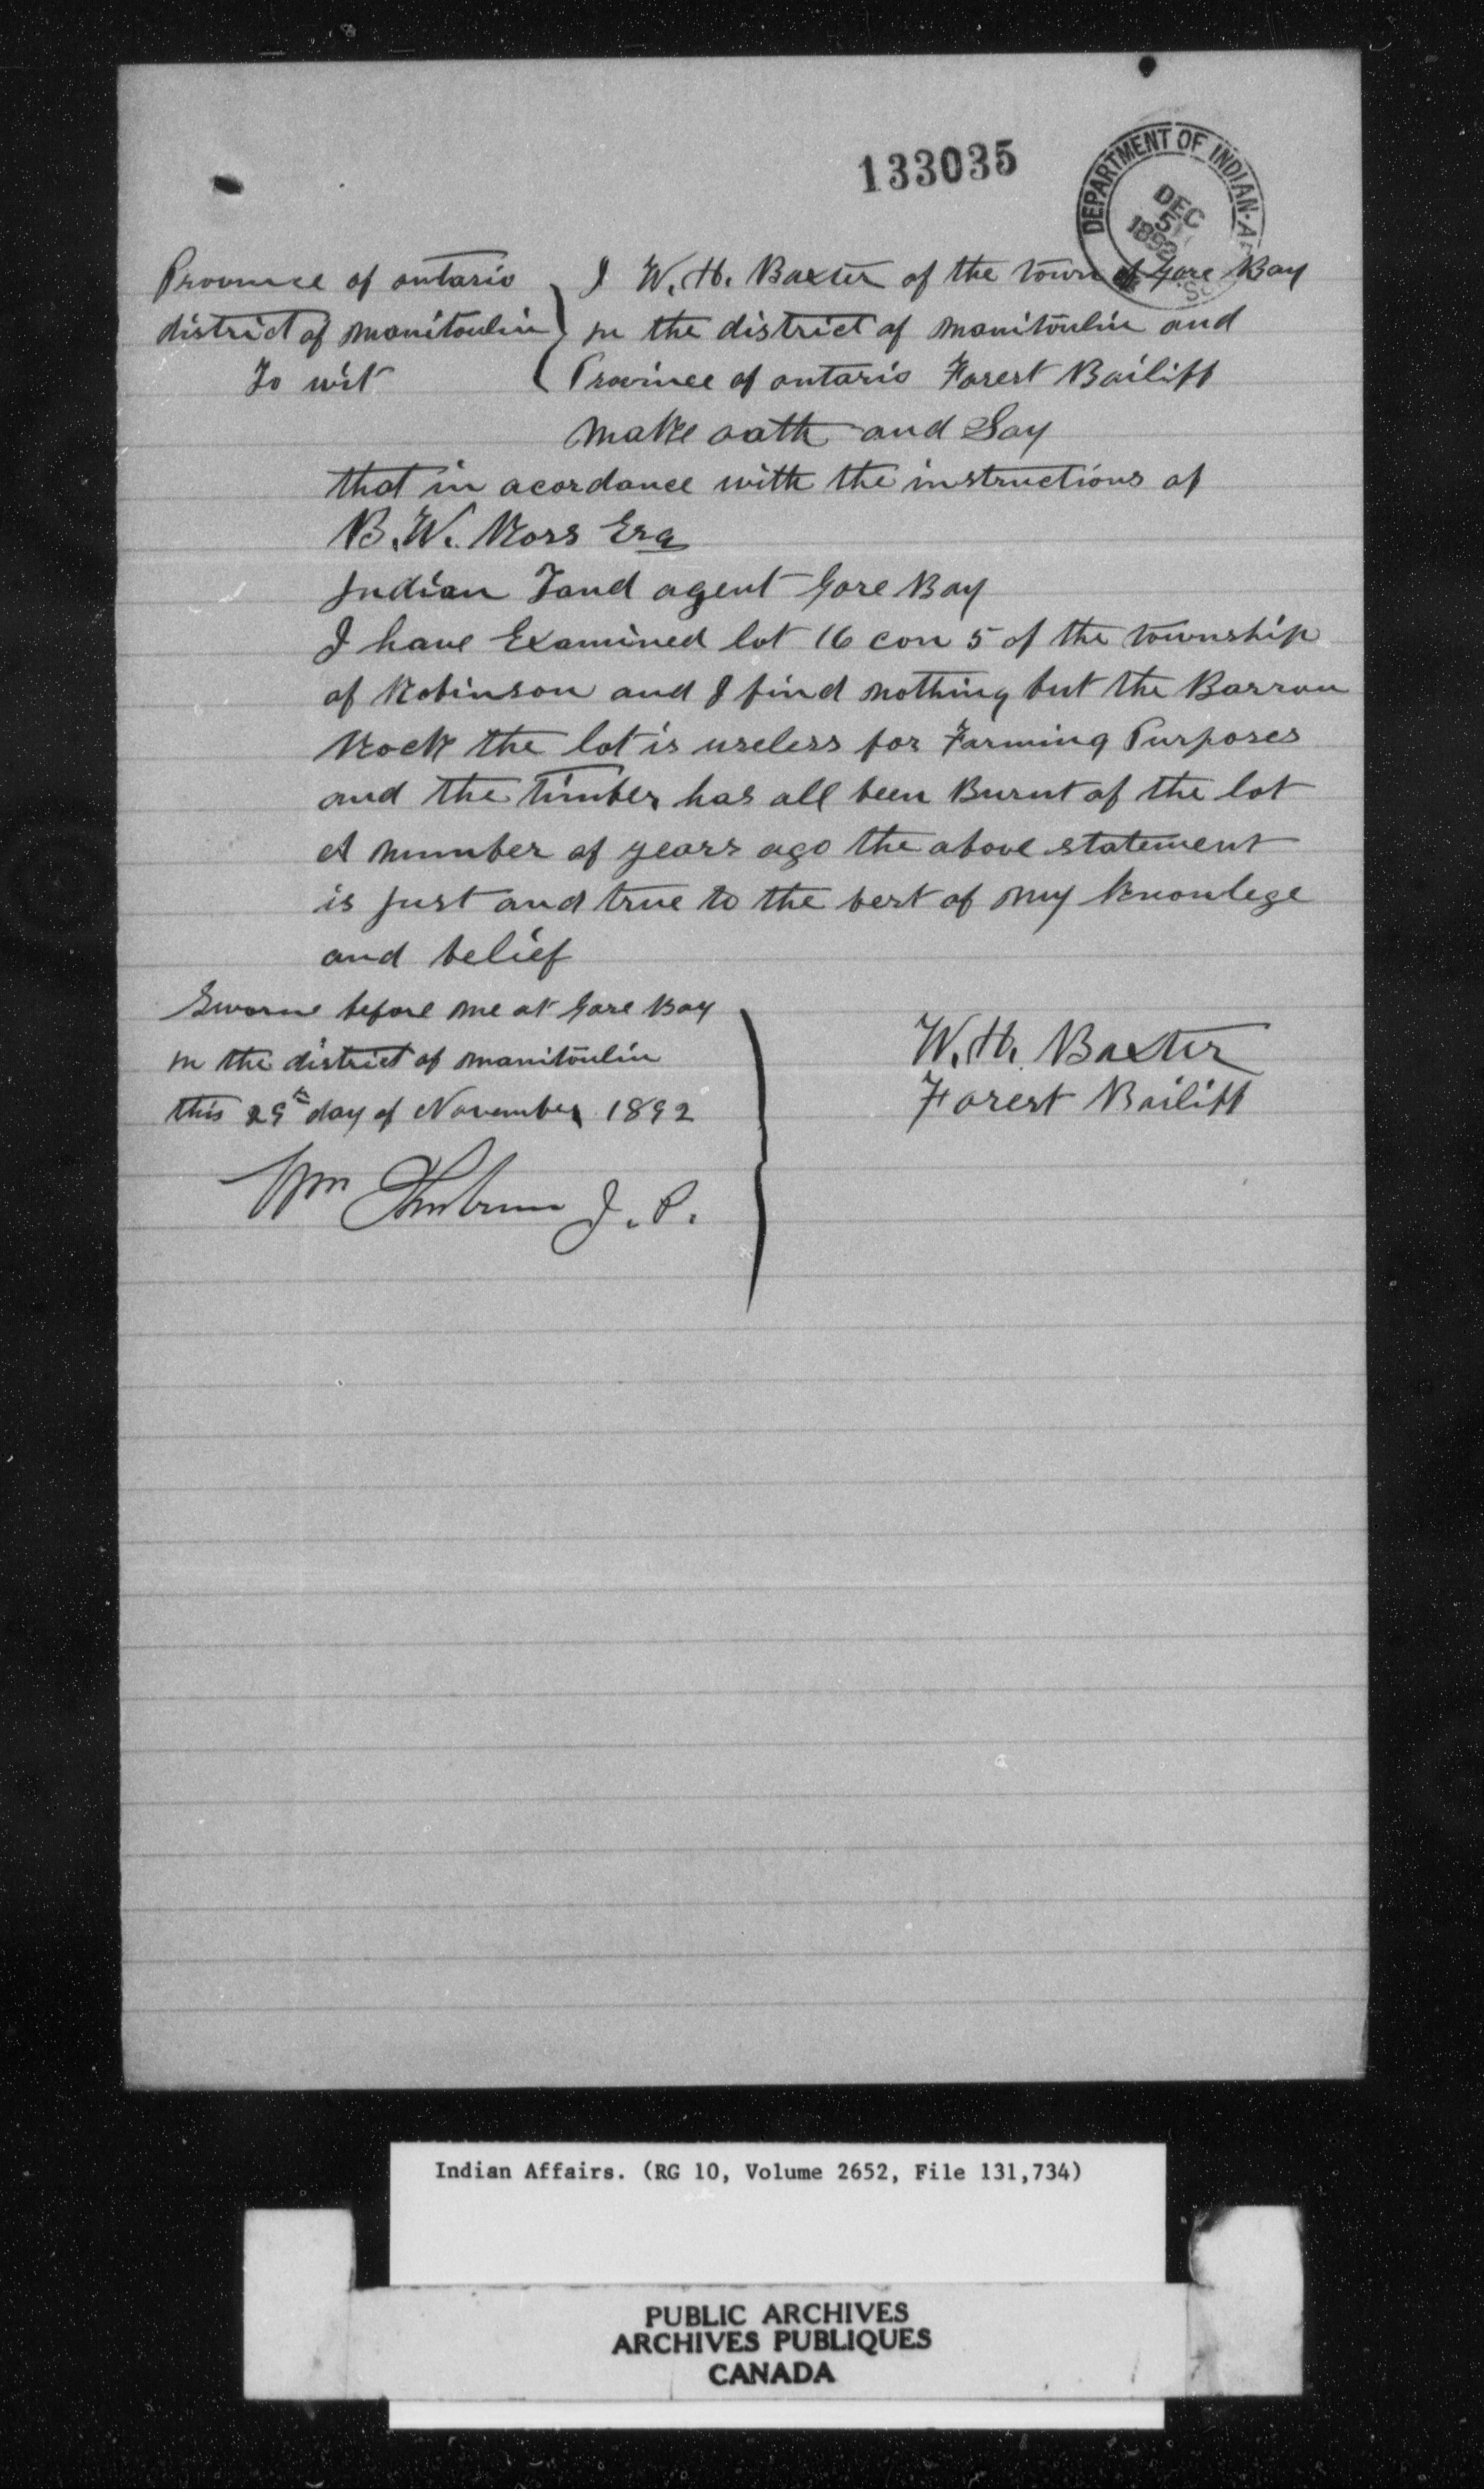 133035
DEPARTMENT OF INDIAN
DEC
5
1892
Province of ontario
district of manitoulin
To wit
I W. H. Baxter of the town of Gore Bay
in the district of manitoulin and
Province of ontario Forest Bailiff
make oath and Say
that in acordance with the instructions of
B. W. Ross Esq
Indian Land agent Gore Bay
I have Examined lot 16 con 5 of the township
of Robinson and I find nothing but the Barran
Rock the lot is useless for Farming Purposes
and the timber has all been Burnt of the lot
A number of years ago the above statement
is just and true to the best of my knowlege
and belief
Sworn before me at Gore Bay
in the district of manitoulin
this 29th day of November 1892
Wm J. P.
W. H. Baxter
Forest Bailiff
Indian Affairs. (RG 10, Volume 2652, File 131,734)
PUBLIC ARCHIVES
ARCHIVES PUBLIQUES
CANADA